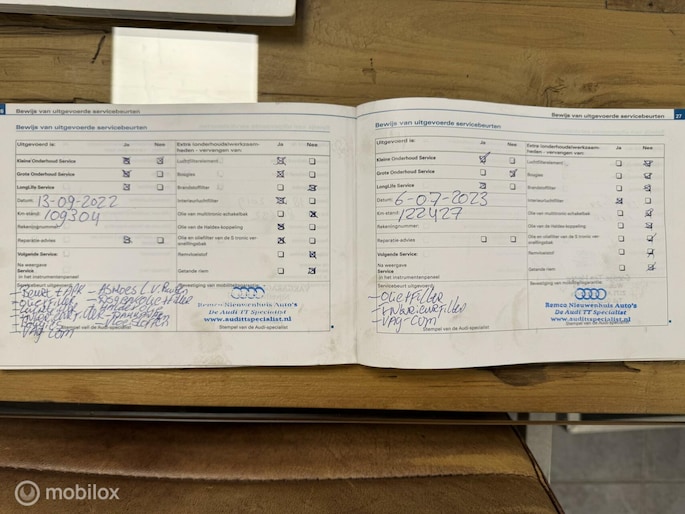 Bewijs van uitgevoerde servicebeurten
Bewijs van uitgevoerde servicebeurten
Uitgevoerd is: Ja Nee
Extra (onderhouds)werkzaamheden - vervangen van: Ja Nee
Kleine Onderhoud Service
Grote Onderhoud Service
LongLife Service
Datum: 13-09-2022
Km stand: 109304
Rekeningnummer:
Reparatie-advies
Volgende Service:
Na weergave
Service
in het instrumentenpaneel
Luchtfilterelement
Bougies
Brandstoffilter
Interieurluchtfilter
Olie van multitronic schakelbak
Olie van de Haldex-koppeling
Olie en oliefilter van de S tronic versnellingsbak
Remvloeistof
Getande riem
Servicebeurt uitgevoerd:
Bevestiging van mobiliteitsgarantie:
VAG COM
Remco Nieuwenhuis Auto's
De Audi TT Specialist
www.audittspecialist.nl
Stempel van de Audi-specialist
Bewijs van uitgevoerde servicebeurten 27
Bewijs van uitgevoerde servicebeurten
Uitgevoerd is: Ja Nee
Extra (onderhouds)werkzaamheden - vervangen van: Ja Nee
Kleine Onderhoud Service
Grote Onderhoud Service
LongLife Service
Datum: 6-07-2023
Km stand: 122427
Rekeningnummer:
Reparatie-advies
Volgende Service:
Na weergave
Service
in het instrumentenpaneel
Luchtfilterelement
Bougies
Brandstoffilter
Interieurluchtfilter
Olie van multitronic schakelbak
Olie van de Haldex-koppeling
Olie en oliefilter van de S tronic versnellingsbak
Remvloeistof
Getande riem
Servicebeurt uitgevoerd:
Bevestiging van mobiliteitsgarantie:
- Olie+Filter
- Interieurfilter
- VAG-COM
Remco Nieuwenhuis Auto's
De Audi TT Specialist
www.audittspecialist.nl
Stempel van de Audi-specialist
mobilox